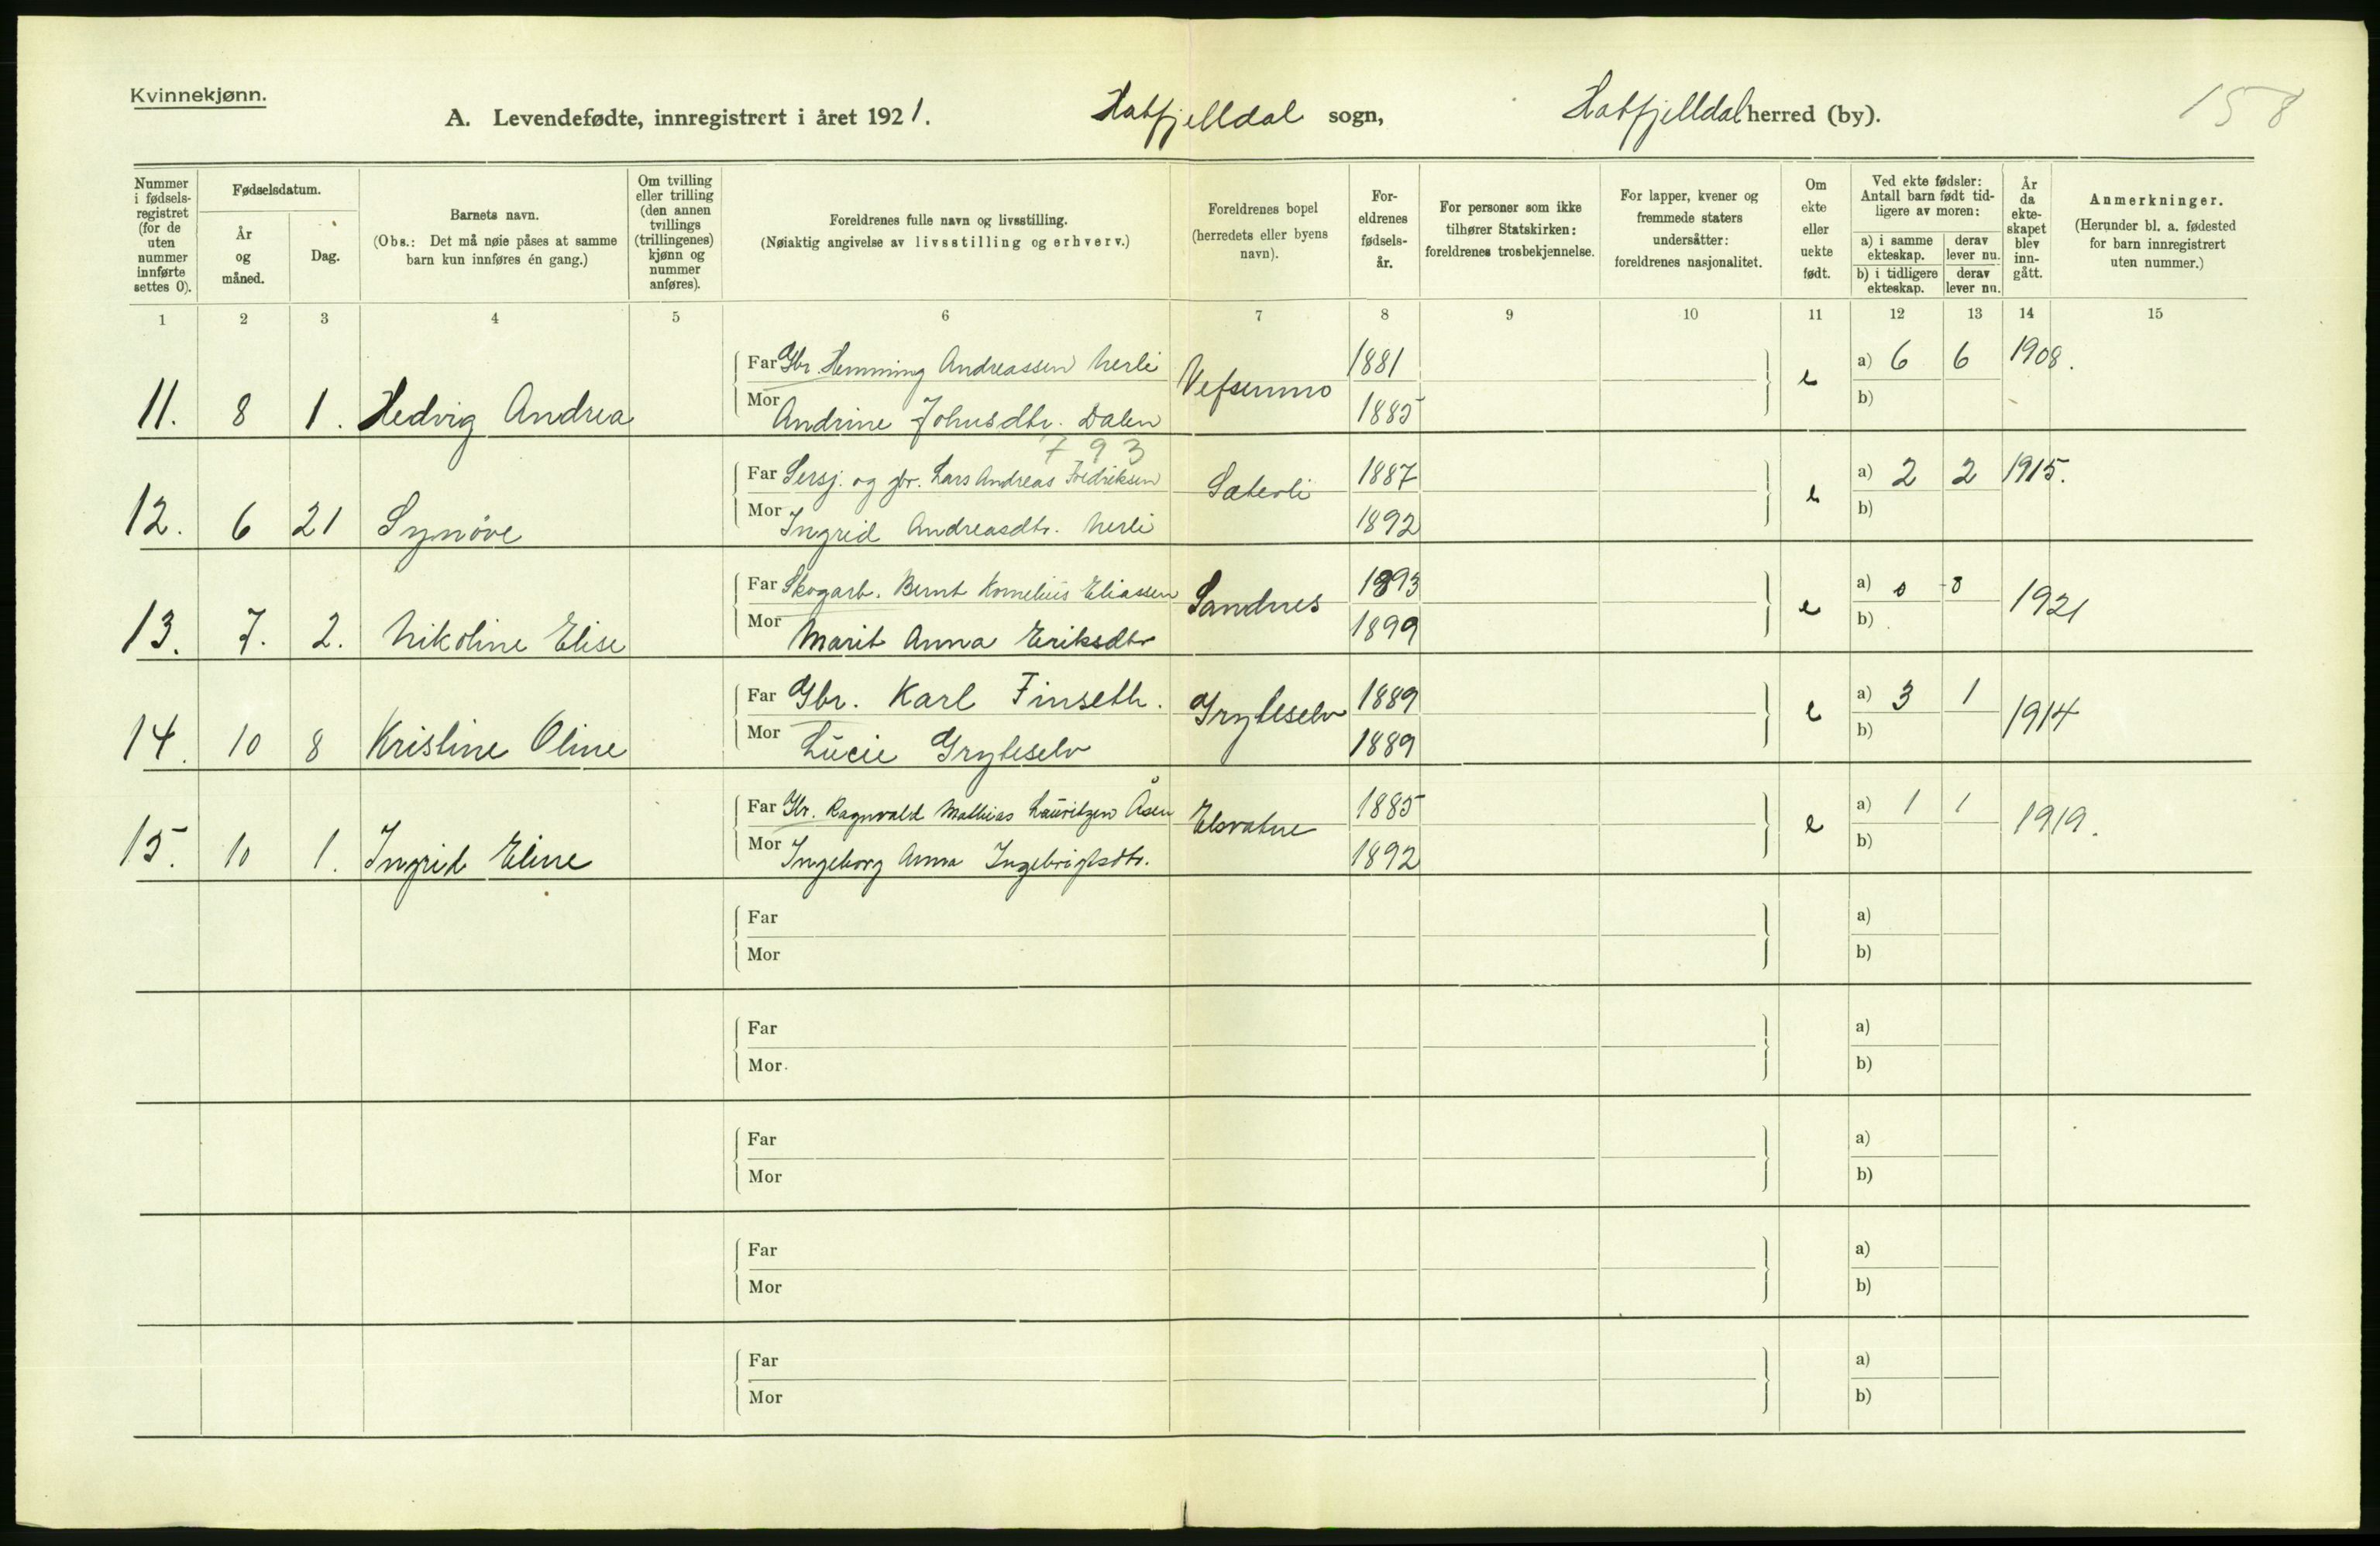 Kvinnekjønn.
A. Levendefødte, innregistrert i året 1921. Hatfjelldal sogn, Hatfjelldal herred (by). 158
Nummer i fødselsregistret (for de uten nummer innførte settes 0).
Fødselsdatum.
År og måned.
Dag.
Barnets navn.
(Obs.: Det må nøie påses at samme barn kun innføres én gang.)
Om tvilling eller trilling (den annen tvillings (trillingenes) kjønn og nummer anføres).
Foreldrenes fulle navn og livsstilling.
(Nøiaktig angivelse av livsstilling og erhverv.)
Foreldrenes bopel (herredets eller byens navn).
Foreldrenes fødselsår.
For personer som ikke tilhører Statskirken: foreldrenes trosbekjennelse.
For lapper, kvener og fremmede staters undersåtter: foreldrenes nasjonalitet.
Om ekte eller uekte født.
Ved ekte fødsler: Antall barn født tidligere av moren:
a) i samme ekteskap. derav lever nu.
b) i tidligere ekteskap. derav lever nu.
År da ekteskapet blev inngått.
Anmerkninger.
(Herunder bl. a. fødested for barn innregistrert uten nummer.)
1 2 3 4 5 6 7 8 9 10 11 12 13 14 15
Far Gbr. Hemming Andreassen Nerli 1881 a) 6 6 1908.
11. 8 1. Hedvig Andrea Mor Andrine Johnsdtr. Dalen Vefsenmo 1885 e b)
793
Far Sersj. og gbr. Lars Andreas Fredriksen Sæterli 1887 a) 2 2 1915.
12. 6 21 Synöve Mor Ingrid Andreasdtr. Nerli 1892 e b)
Far Skogarb. Bernt Kornelius Eliassen Sandnes 1893 a) 0 0 1921
13. 7. 2. Nikoline Elise Mor Marit Anna Eriksdtr 1899 e b)
Far Gbr. Karl Finseth. Gryteselv 1889 a) 3 1 1914
14. 10 8 Kristine Oline Mor Lucie Gryteselv 1889 e b)
Far Gbr. Ragnvald Mathias Lauritzen Åsen Elsvatne 1885 a) 1 1 1919.
15. 10 1. Ingrid Eline Mor Ingeborg Anna Ingebrigtsdtr. 1892 e b)
Far a)
Mor b)
Far a)
Mor b)
Far a)
Mor b)
Far a)
Mor b)
Far a)
Mor b)